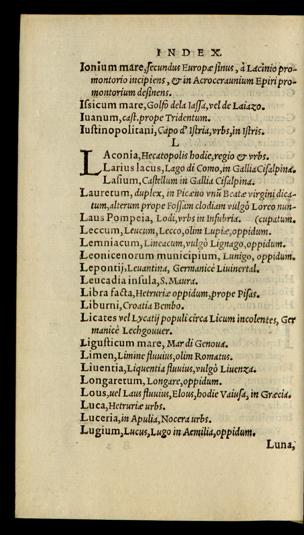 INDEX.
Ionium mare, secundus Europæ sinus, à Lacinio pro-
montorio incipiens, & in Acroceraunium Epiri pro-
montorium desinens.
Issicum mare, Golfo dela Iassa, vel de Laiazo.
Iuanum, cast. prope Tridentum.
Iustinopolitani, Capo d' Istria, vrbs, in Istris.
L
LAconia, Hecatopolis hodie, regio & vrbs.
Larius lacus, Lago di Como, in Gallia Cisalpina.
Lasium, Castellum in Gallia Cisalpina.
Lauretum, duplex, in Picæno vnū Beatæ virgini dica-
tum, alterum prope Fossam clodiam vulgò Loreo nun-
Laus Pompeia, Lodi, vrbs in Insubria. (cupatum.
Leccum, Leucum, Lecco, olim Lupiæ, oppidum.
Lemniacum, Lineacum, vulgò Lignago, oppidum.
Leonicenorum municipium, Lunigo, oppidum.
Lepontij, Leuantina, Germanicè Liuinertal.
Leucadia insula, S. Maura.
Libra facta, Hetruriæ oppidum, prope Pisas.
Liburni, Croatia Bembo.
Licates vel Lycatij populi circa Licum incolentes, Ger
manicè Lechgouuer.
Ligusticum mare, Mar di Genoua.
Limen, Limine fluuius, olim Romatus.
Liuentia, Liquentia fluuius, vulgò Liuenza.
Longaretum, Longare, oppidum.
Lous, vel Laus fluuius, Elous, hodie Vaiusa, in Græcia.
Luca, Hetruriæ urbs.
Luceria, in Apulia, Nocera urbs.
Lugium, Lucus, Lugo in Aemilia, oppidum.
Luna,